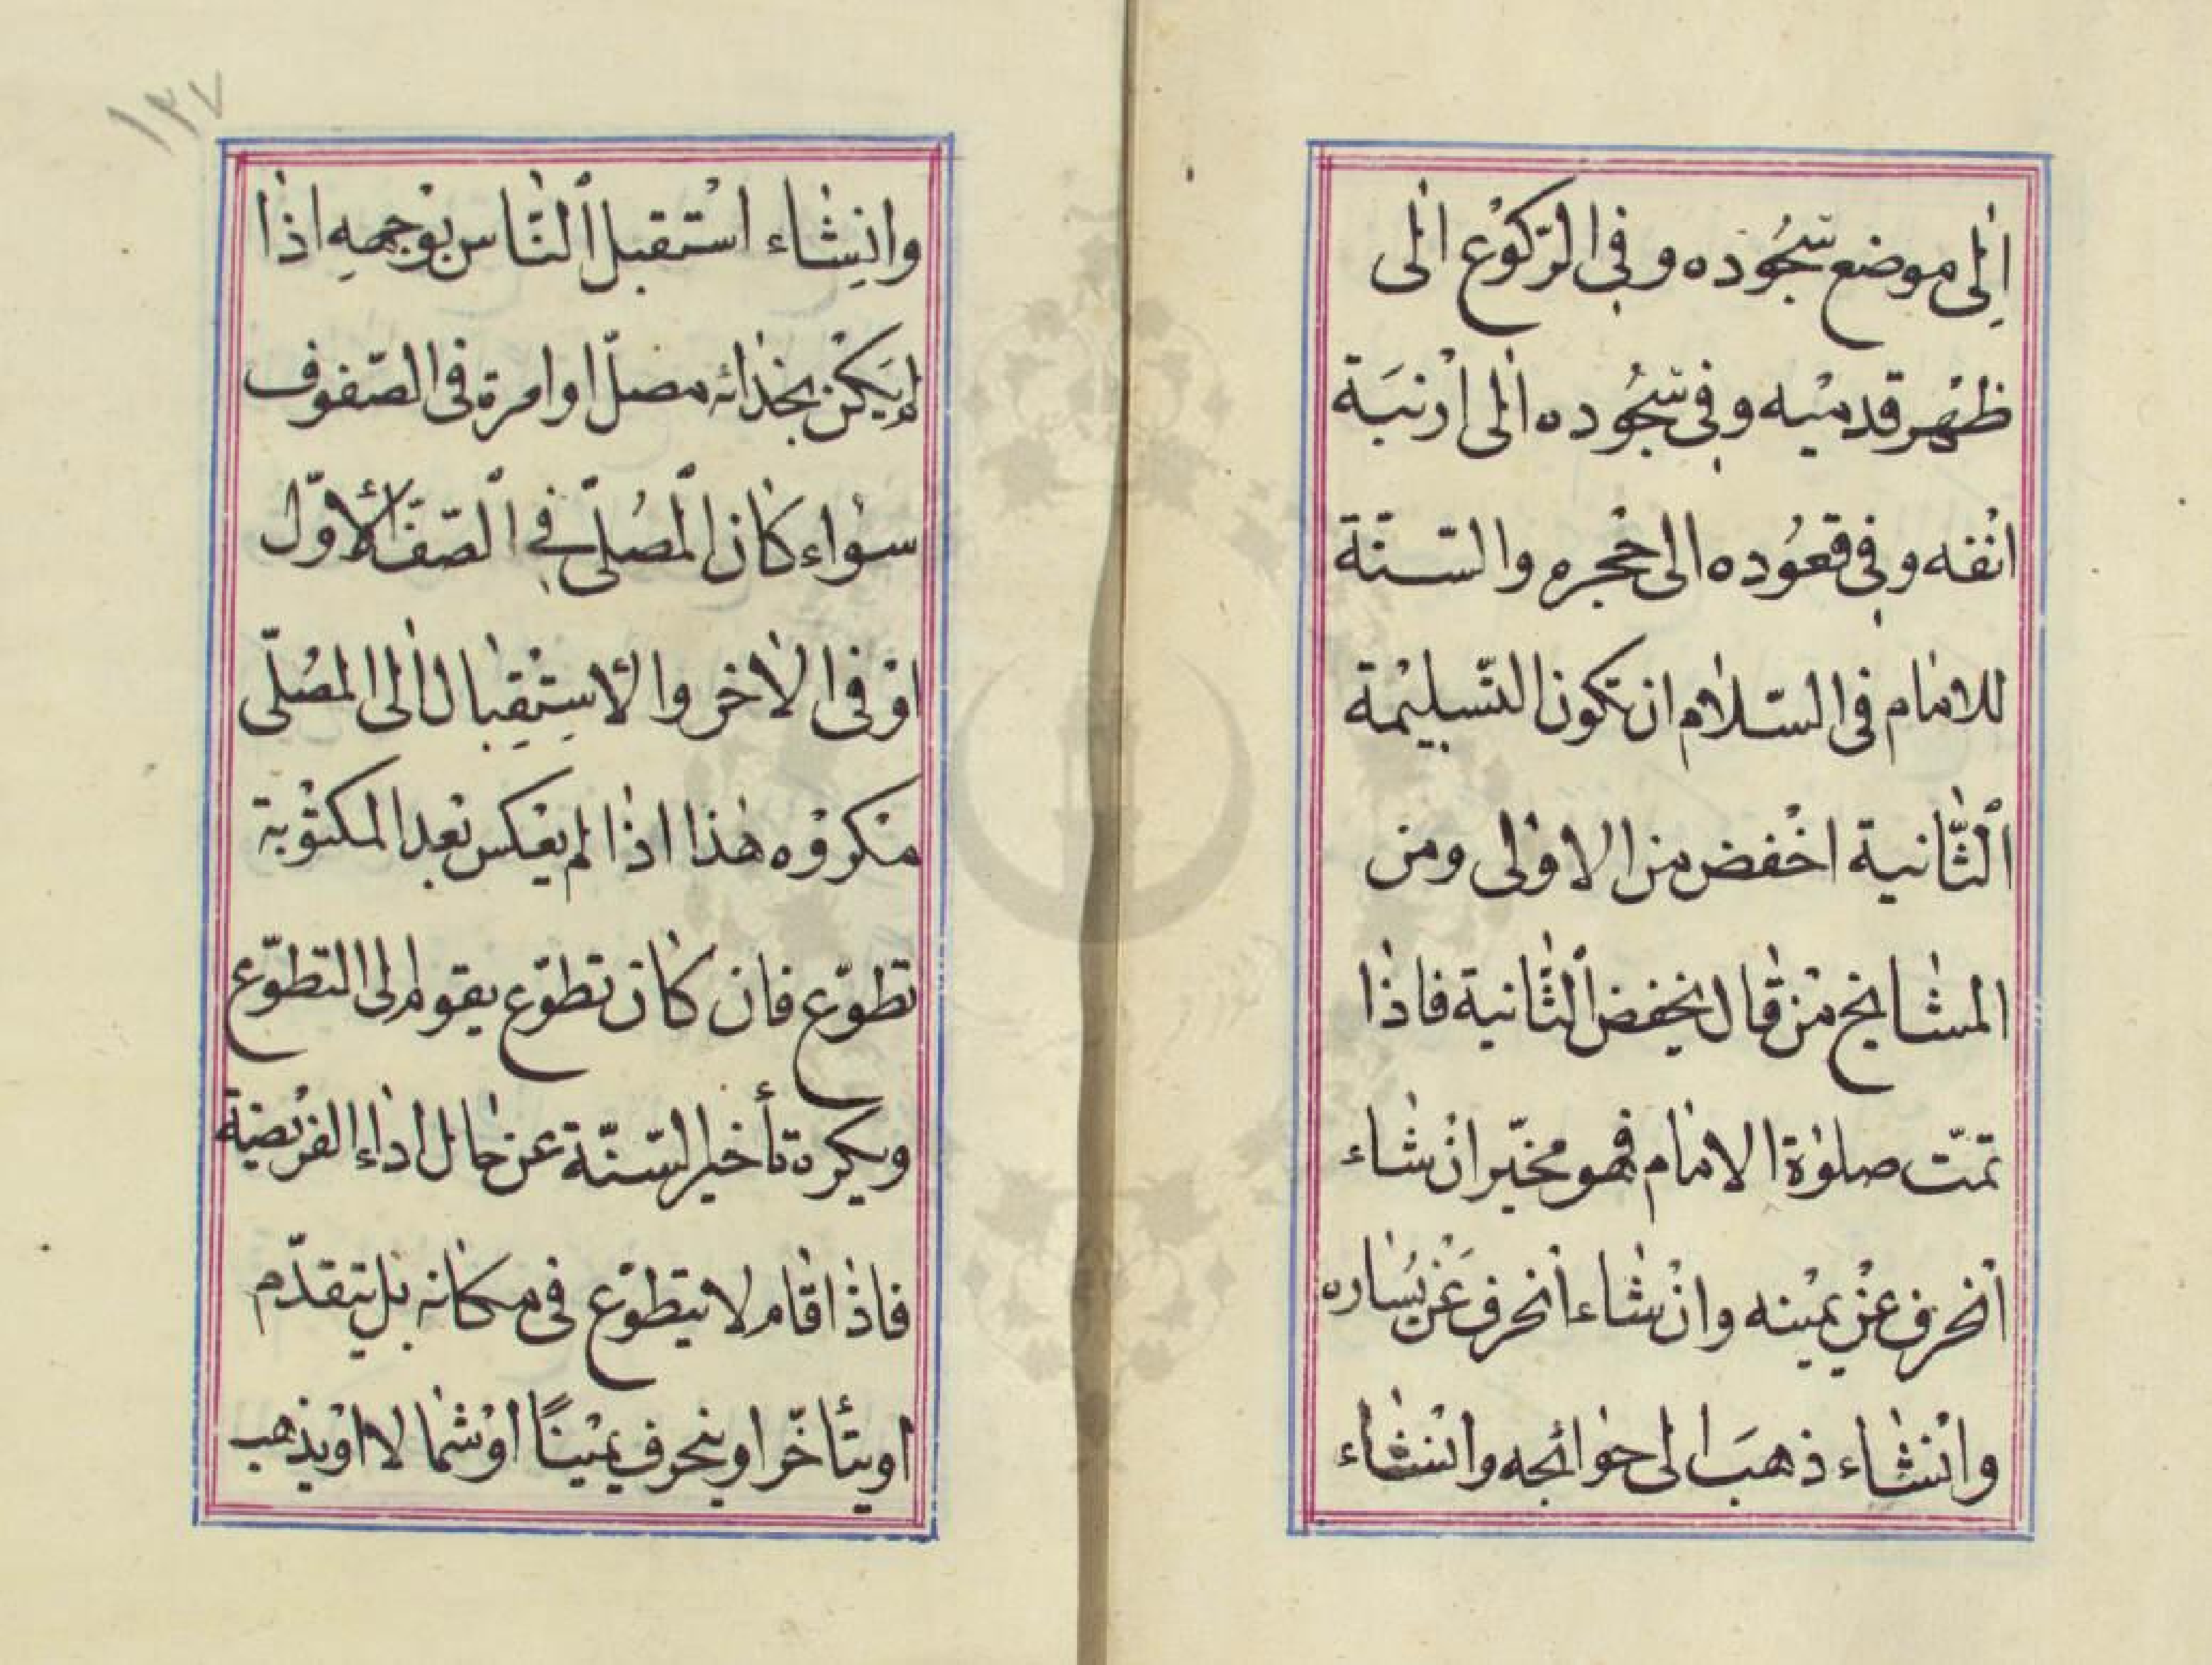 اِلٰى موضع سُجُوده و فى الرّكوْع الٰى
ظهْر قدميْه و فى سُجُوده الٰى ارْنبَة
انْفه و فى قعُوده الى حْجره والسّنّة
للامٰام فى السّلاٰم ان تكون التّسليْمة
ٱلثّٰانية اخْفض من الاوْلى ومن
المشٰايخ منْ قٰال يخفض ٱلثّٰانية فاذٰا
تمّت صلوٰة الامٰام فهو مخيّر انْ شٰاء
ٱنْحرف عنْ يميْنه وانْ شٰاء ٱنْحرف عَنْ يسٰاره
وانْشٰاء ذهبَ الى حوٰائجه وانْشٰاء
وانِشٰاء اسْتقبل ٱلنّٰاس بوْجهِه اذٰا
لم يَكنْ بحذٰائه مصلّ او امرة فى الصّفوف
سوٰاء كٰان ٱلْمصُلّى فى ٱلصّفّ الأوّل
اوْ فى الاٰخر والأسِتْقِبٰال الٰى المصُلّى
مكروْه هٰذا اذٰا لم يعْكس بعْد المكتوْبة
تطوّع فان كٰان تطوّع يقوم الى التطوّع
ويكره تأخير السّنّة عن حٰال ادٰاء الفرْيضة
فاذٰا قٰام لا يتطوّع فى مكٰانه بلْ يتقدّم
او يتأخّر او ينحرف يميْنًا اوْ شمٰالا اوْ يذهب
١٣٧